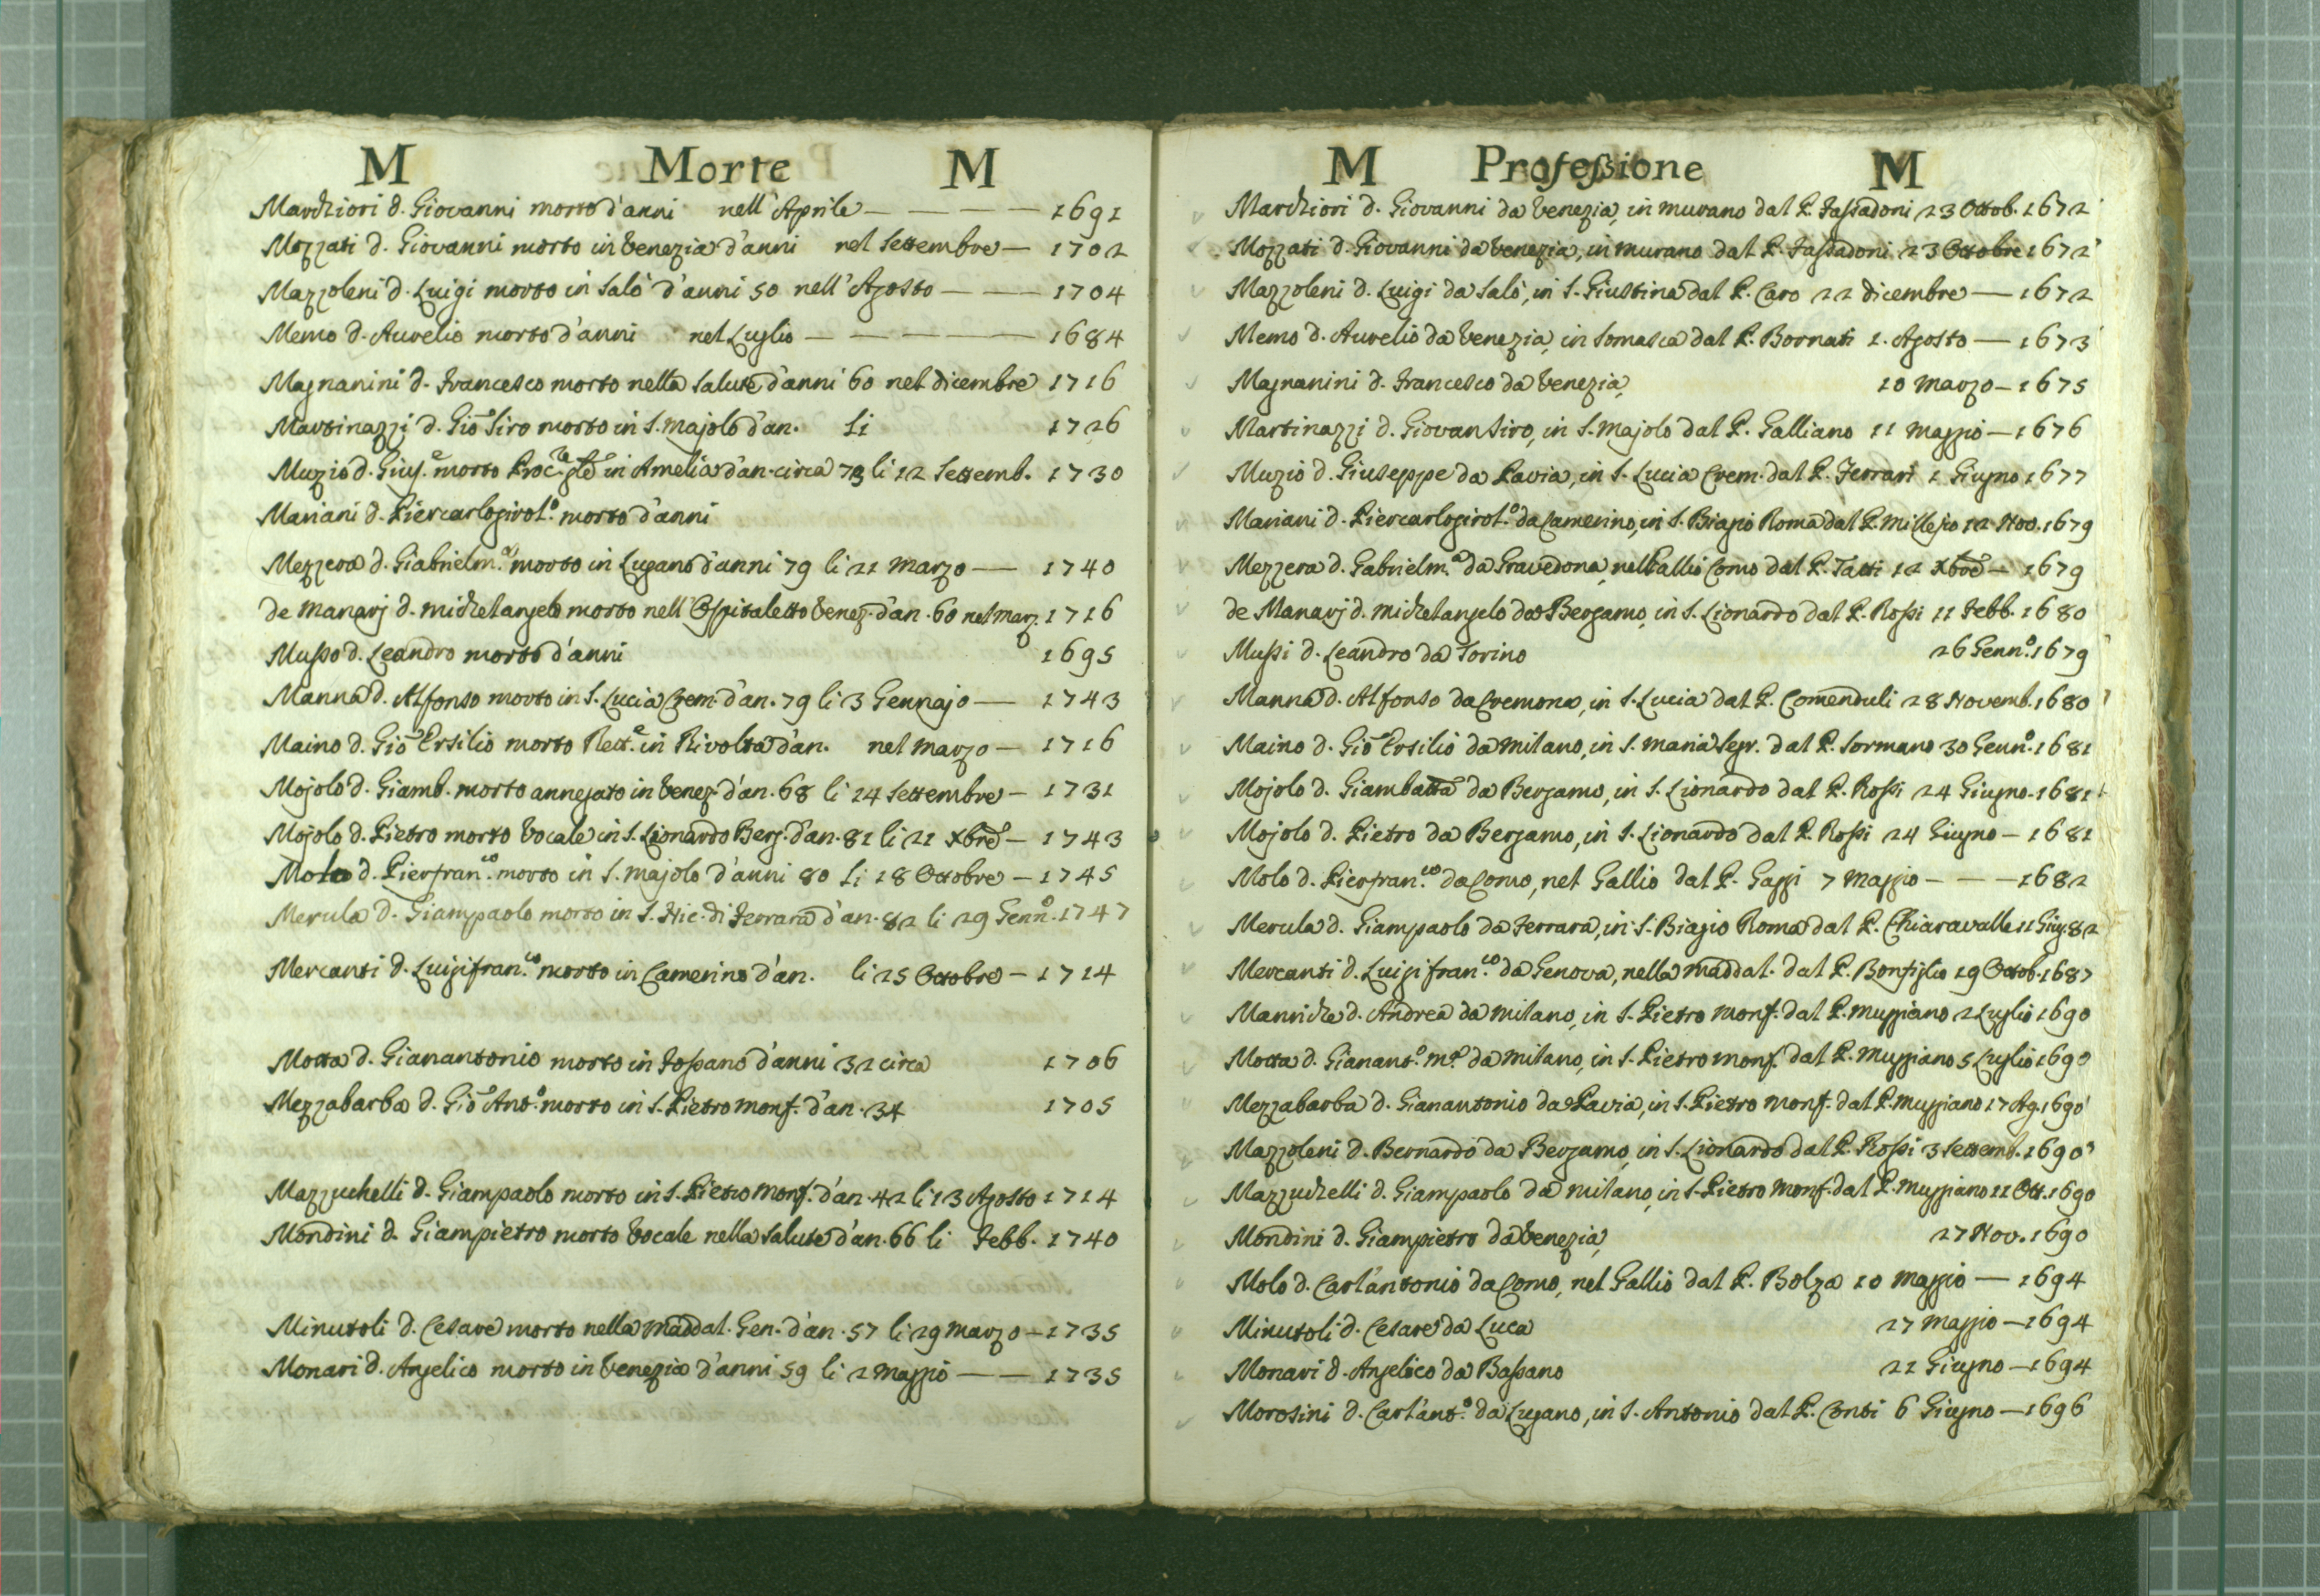 M Morte M
Marchiori d. Giovanni morto d'anni nell'Aprile — 1691
Mozzati d. Giovanni morto in Venezia d'anni nel Settembre — 1702
Mazzoleni d. Luigi morto in Salò d'anni 50 nell'Agosto — 1704
Memo d. Aurelio morto d'anni nel Luglio — 1684
Magnanini d. Francesco morto nella Salute d'anni 60 nel dicembre 1716
Martinazzi d. Gio Siro morto in S. Majolo d'an. li 1726
Muzio d. Gius.e morto in Amelia d'an. circa 73 li 12 Settemb. 1730
Mariani d. Piercarlogirol.o morto d'anni
Mezzera d. Giabrielm.a morto in Lugano d'anni 79 li 21 Marzo — 1740
de Manarj d. Michelangelo morto nell'Ospitaletto Venez. d'an. 60 nel Marz. 1716
Musso d. Leandro morto d'anni 1695
Manna d. Alfonso morto in S. Lucia Crem. d'an. 79 li 3 Gennajo — 1743
Maino d. Gio Ersilio morto Rett.e in Rivolta d'an. nel Marzo — 1716
Mojolo d. Giamb. morto annegato in Venez. d'an. 68 li 24 Settembre — 1731
Mojolo d. Pietro morto Vocale in S. Lionardo Berg. d'an. 81 li 21 Xbre — 1743
Molo d. Pierfran.co morto in S. Majolo d'anni 80 li 18 Ottobre — 1745
Merula d. Giampaolo morto in S. Nic. di Ferrara d'an. 82 li 29 Genn.o 1747
Mercanti d. Luigifran.co morto in Camerino d'an. li 25 Ottobre — 1714
Motta d. Gianantonio morto in Fossano d'anni 32 circa 1706
Mezzabarba d. Gio Ant.o morto in S. Pietro Monf. d'an. 34 1705
Mazzuchelli d. Giampaolo morto in S. Pietro Monf. d'an. 42 li 13 Agosto 1714
Mondini d. Giampietro morto Vocale nella Salute d'an. 66 li Febb. 1740
Minutoli d. Cesare morto nella Maddal. Gen. d'an. 57 li 29 Marzo — 1735
Monari d. Angelico morto in Venezia d'anni 59 li 2 Maggio — 1735
M Professione M
Marchiori d. Giovanni da Venezia, in Murano dal P. Fassadoni 23 Ottob. 1672
Mozzati d. Giovanni da Venezia, in Murano dal P. Fassadoni 23 Ottobre 1672
Mazzoleni d. Luigi da Salò, in S. Giustina dal P. Caro 22 dicembre — 1672
Memo d. Aurelio da Venezia, in Somasca dal P. Bornati 1. Agosto — 1673
Magnanini d. Francesco da Venezia, 10 Marzo — 1675
Martinazzi d. Giovan Siro, in S. Majolo dal P. Galliano 11 Maggio — 1676
Muzio d. Giuseppe da Pavia, in S. Lucia Crem. dal P. Ferrari 1 Giugno 1677
Mariani d. Piercarlogirol.o da Camerino, in S. Biagio Roma dal P. Millesio 12 Nov. 1679
Mezzera d. Gabrielm.a da Gravedona, nel Gallio Como dal P. Tatti 12 Xbre — 1679
de Manarj d. Michelangelo da Bergamo, in S. Lionardo dal P. Rossi 11 Febb. 1680
Mussi d. Leandro da Torino 26 Genn.o 1679
Manna d. Alfonso da Cremona, in S. Lucia dal P. Comenduli 28 Novemb. 1680
Maino d. Gio Ersilio da Milano, in S. Maria Segr. dal P. Sormano 30 Genn.o 1681
Mojolo d. Giambatta da Bergamo, in S. Lionardo dal P. Rossi 24 Giugno. 1681
Mojolo d. Pietro da Bergamo, in S. Lionardo dal P. Rossi 24 Giugno — 1681
Molo d. Pierfran.co da Como, nel Gallio dal P. Gaggi 7 Maggio — 1682
Merula d. Giampaolo da Ferrara, in S. Biagio Roma dal P. Chiaravalle 11 Giug. 82
Mercanti d. Luigifran.co da Genova, nella Maddal. dal P. Bonfiglio 19 Ottob. 1687
Manriche d. Andrea da Milano, in S. Pietro Monf. dal P. Muggiano 2 Luglio 1690
Motta d. Gianant.o M.a da Milano, in S. Pietro Monf. dal P. Muggiano 5 Luglio 1690
Mezzabarba d. Gianantonio da Pavia, in S. Pietro Monf. dal P. Muggiano 17 Ag. 1690
Mazzoleni d. Bernardo da Bergamo, in S. Lionardo dal P. Rossi 3 Settemb. 1690
Mazzuchelli d. Giampaolo da Milano, in S. Pietro Monf. dal P. Muggiano 11 Ott. 1690
Mondini d. Giampietro da Venezia, 27 Nov. 1690
Molo d. Carl'antonio da Como, nel Gallio dal P. Bolza 10 Maggio — 1694
Minutoli d. Cesare da Luca 27 Maggio — 1694
Monari d. Angelico da Bassano 21 Giugno — 1694
Morosini d. Carl'ant.o da Lugano, in S. Antonio dal P. Conti 6 Giugno — 1696